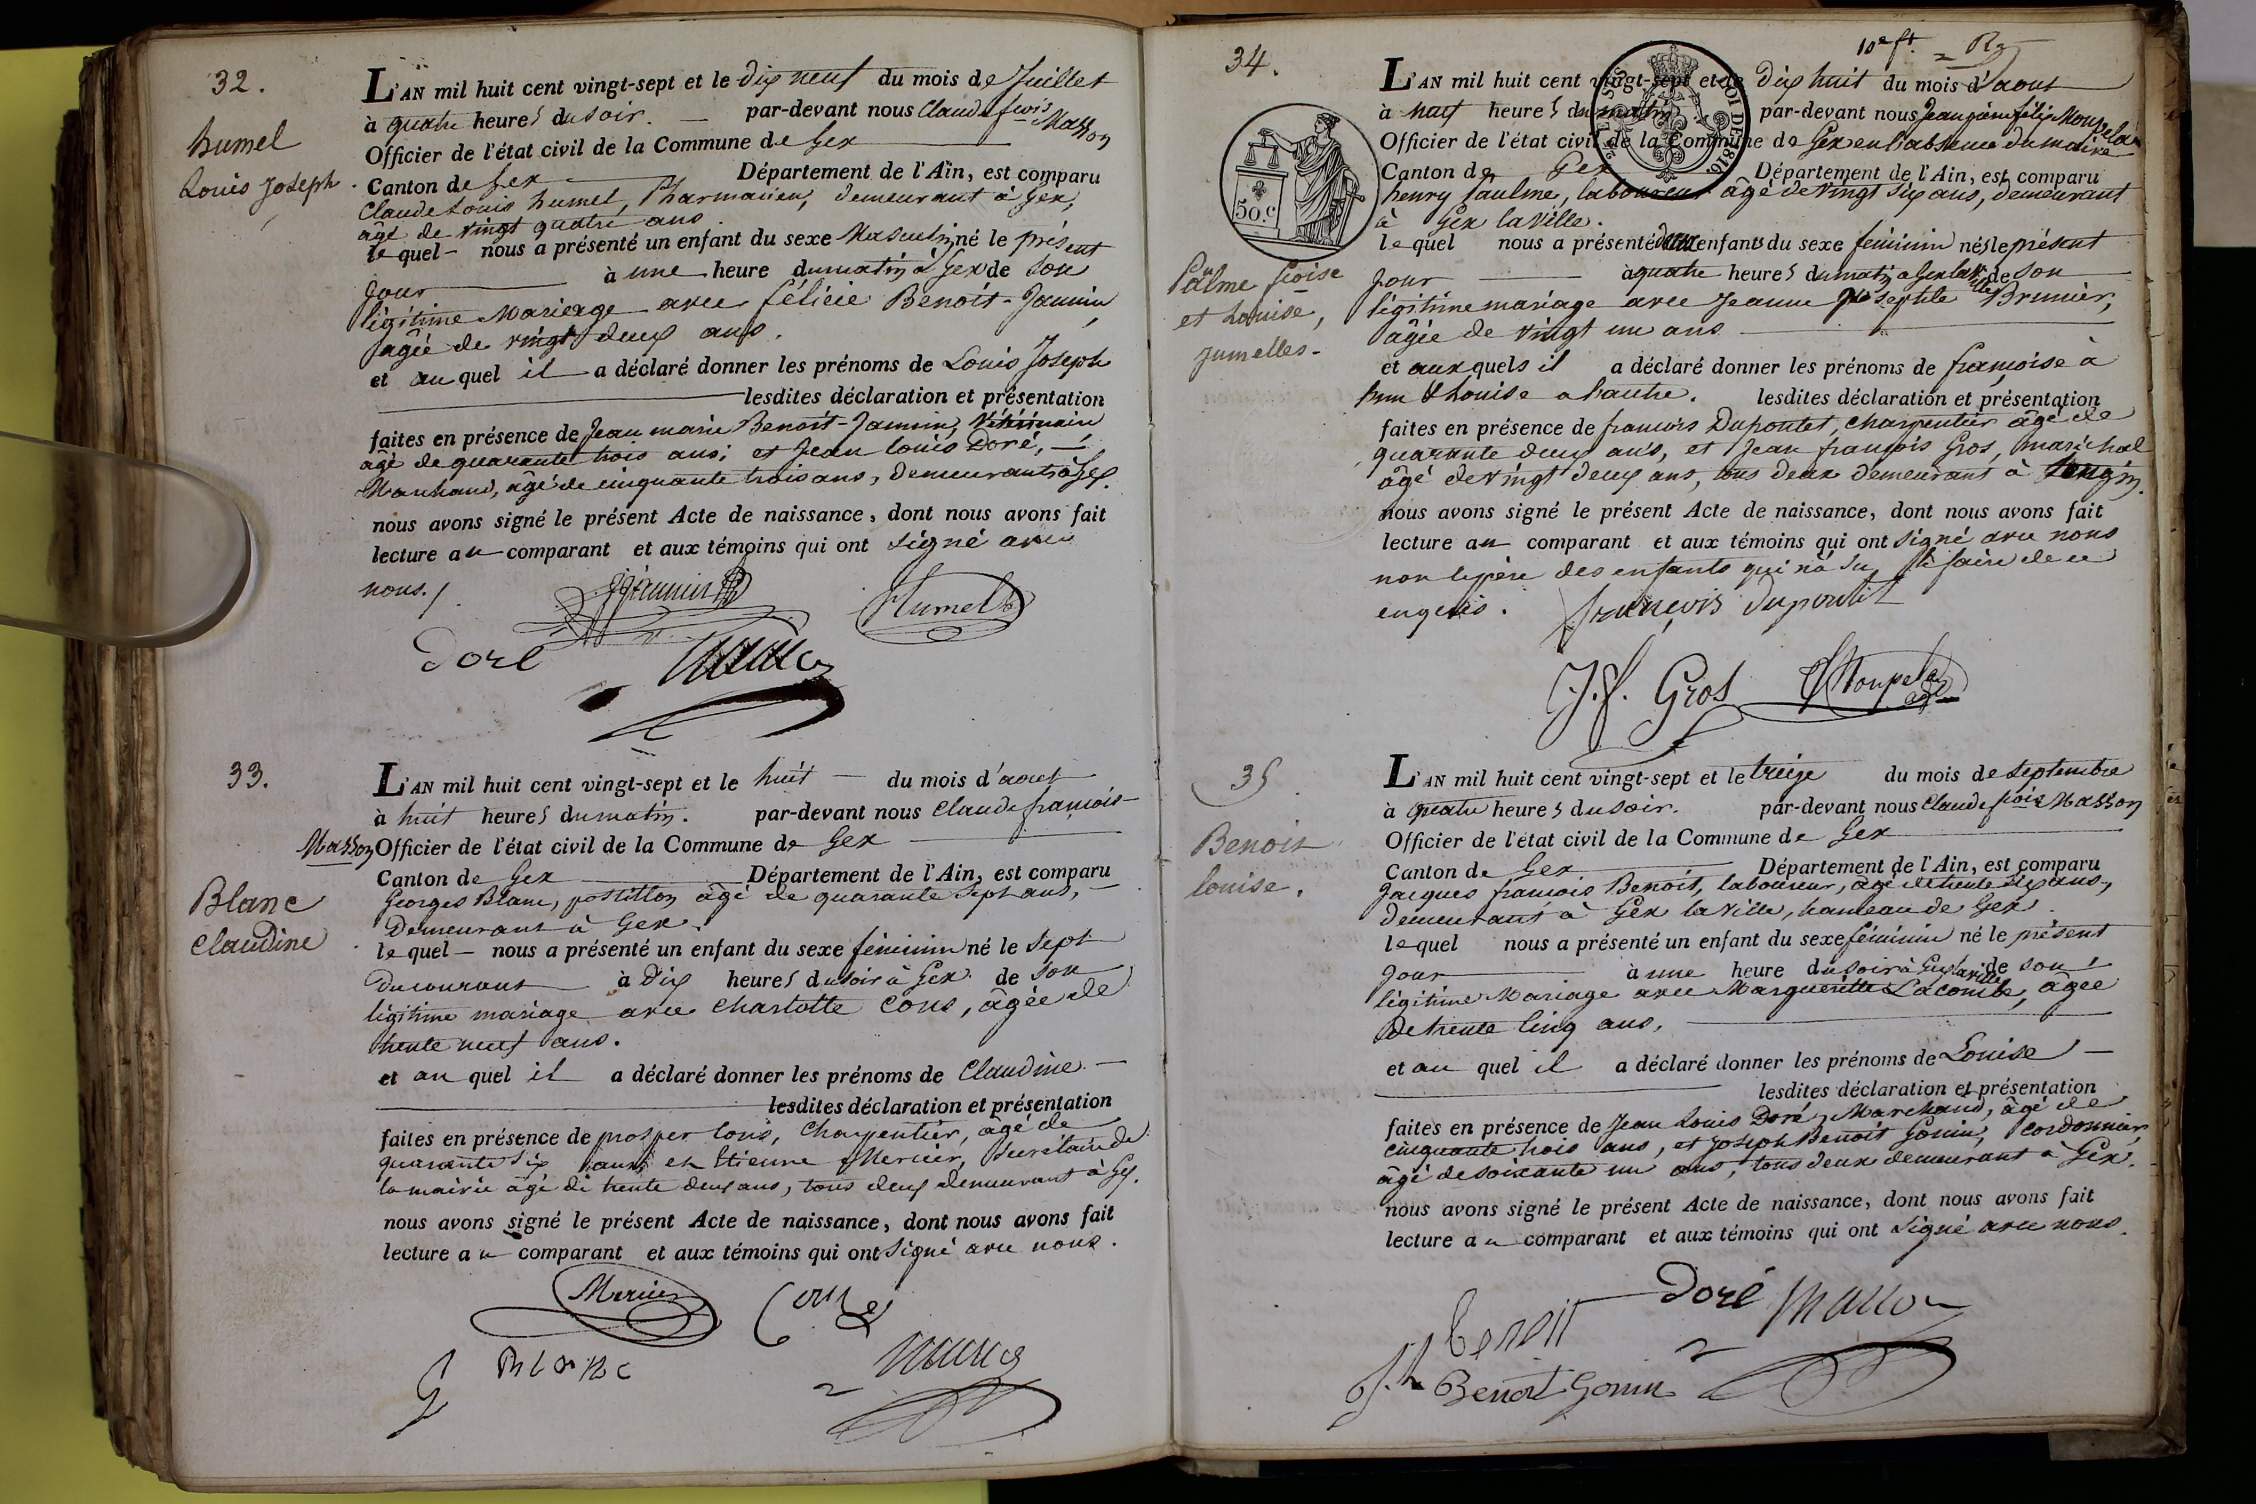 32.
humel
Louis Joseph
L'AN mil huit cent vingt-sept et le dix neuf du mois de Juillet
à quatre heures du soir. par-devant nous Claude fcois Masson
Officier de l'état civil de la Commune de Gex
Canton de Gex Département de l'Ain, est comparu
Claude Louis humel, Pharmacien, demeurant à Gex,
âgé de vingt quatre ans.
lequel nous a présenté un enfant du sexe Masculin né le présent
jour à une heure du matin à Gex de son
légitime Mariage avec félicie Benoit-Jannin,
âgée de vingt deux ans.
et au quel il a déclaré donner les prénoms de Louis Joseph
lesdites déclaration et présentation
faites en présence de Jean marie Benoit-Jannin, Vétérinaire
âgé de quarante trois ans; et Jean louis Doré,
Marchand, âgé de cinquante trois ans, demeurants à Gex.
nous avons signé le présent Acte de naissance, dont nous avons fait
lecture au comparant et aux témoins qui ont signé avec
nous.
Jannin
Humel
Doré
33.
Blanc
Claudine
L'AN mil huit cent vingt-sept et le huit du mois d'aout
à huit heures du matin. par-devant nous Claude françois
Masson Officier de l'état civil de la Commune de Gex
Canton de Gex Département de l'Ain, est comparu
Georges Blanc, postillon âgé de quarante sept ans,
Demeurant à Gex.
lequel nous a présenté un enfant du sexe féminin né le sept
du courant à dix heures du soir à Gex de son
légitime mariage avec charlotte Cons, âgée de
trente neuf ans.
et au quel il a déclaré donner les prénoms de Claudine
lesdites déclaration et présentation
faites en présence de prosper Cons, Charpentier, âgé de
quarante six ans et Etienne Mercier, Secrétaire de
la mairie âgé de trente deux ans, tous deux demeurant à Gex.
nous avons signé le présent Acte de naissance, dont nous avons fait
lecture au comparant et aux témoins qui ont signé avec nous.
Mercier
Cons
G Blanc
34.
Paulme fcoise
et Louise,
Jumelles.
50.c
ROI DE 1816
L'AN mil huit cent vingt-sept et le dix huit du mois d'aout
à neuf heures du matin par-devant nous Jean pierre félix Moupela
Officier de l'état civil de la Commune de Gex en l'absence du maire
Canton de Gex Département de l'Ain, est comparu
henry Paulme, laboureur âgé de vingt six ans, demeurant
à Gex la Ville.
lequel nous a présenté deux enfants du sexe féminin nés le présent
jour à quatre heures du matin à Gex la ville de son
légitime mariage avec Jeanne Brunier,
âgée de vingt un ans
et aux quels il a déclaré donner les prénoms de françoise à
l'une & Louise à l'autre. lesdites déclaration et présentation
faites en présence de francois Dupontet, charpentier âgé de
quarante deux ans, et Jean françois Gros, maréchal
âgé de vingt deux ans, tous deux demeurant à
nous avons signé le présent Acte de naissance, dont nous avons fait
lecture au comparant et aux témoins qui ont signé avec nous
non le père des enfants qui n'a su le faire de ce
enquis.
françois dupontet
J. f. Gros
Moupela
35
Benoit
louise.
L'AN mil huit cent vingt-sept et le treize du mois de septembre
à quatre heures du soir. par-devant nous Claude fcois Masson
Officier de l'état civil de la Commune de Gex
Canton de Gex Département de l'Ain, est comparu
Jacques francois Benoit, laboureur, âgé de trente six ans,
demeurant à Gex la Ville, hameau de Gex.
lequel nous a présenté un enfant du sexe féminin né le présent
jour à une heure du soir à Gex la ville de son
légitime Mariage avec Marguerite Lacombe, âgée
de trente cinq ans,
et au quel il a déclaré donner les prénoms de Louise
lesdites déclaration et présentation
faites en présence de Jean Louis Doré, Marchand, âgé de
cinquante trois ans, et Joseph Benoit Gonin, Cordonnier,
âgé de soixante un ans, tous deux demeurant à Gex.
nous avons signé le présent Acte de naissance, dont nous avons fait
lecture au comparant et aux témoins qui ont signé avec nous.
Doré Masson
Benoit
Benoit Gonin